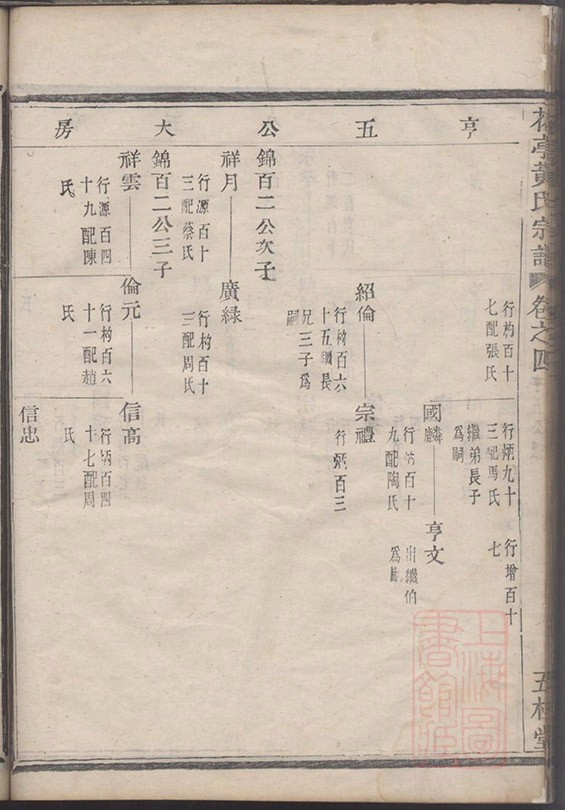 亭黃氏宗譜 卷之四
五桂堂
亨五公大房
行枃百十
七配張氏
行炳九十
三配馬氏
繼弟長子
爲嗣
行增百十
七
國麟
行炳百十
九配陶氏
亨文
出繼伯
爲嗣
紹倫
行枃百六
十五繼長
兄三子爲
嗣
宗禮
行炳百三
錦百二公次子
祥月
行源百十
三配蔡氏
廣緑
行枃百十
三配周氏
錦百二公三子
祥雲
行源百四
十九配陳
氏
倫元
行枃百六
十一配趙
氏
信高
行炳百四
十七配周
氏
信忠
上海圖
書館藏